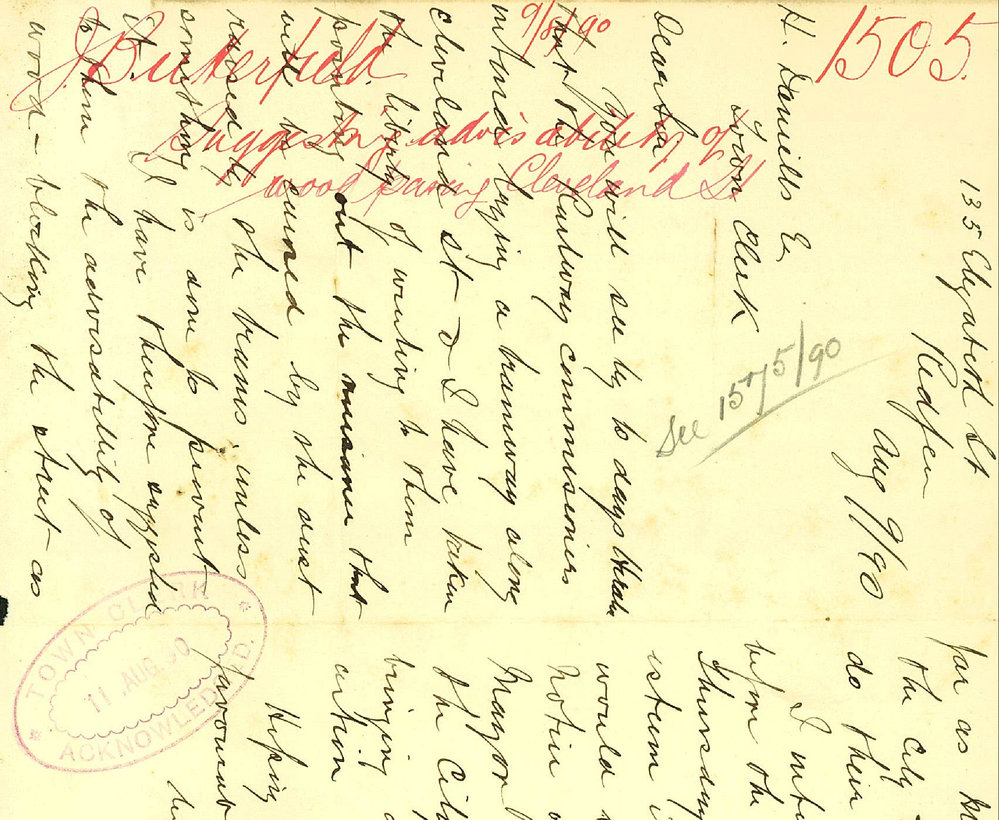 1505.
9/8/90
J Butterfield
Suggesting advisability of
wood paving Cleveland St
135 Elizabeth St
Redfern
Aug 9/90
H. Daniells Esq
Town Clerk
Dear Sir,
You will see by to days Herald
that the Railway Commissioners
intend laying a tramway along
Cleveland St & I have taken
the liberty of writing to them
pointing out the nuisance that
will be caused by the dust
raised by the trams, unless
something is done to prevent
it. I have therefore suggested
to them the advisability of
wood-blocking the street as
far as
the City
do their
I
before the
Thursday
esteem
would
notice
Mayor
the City
bringing
action
Hoping
favourable
See 1575/90
TOWN CLERK
11 AUG. 90
ACKNOWLEDGED.